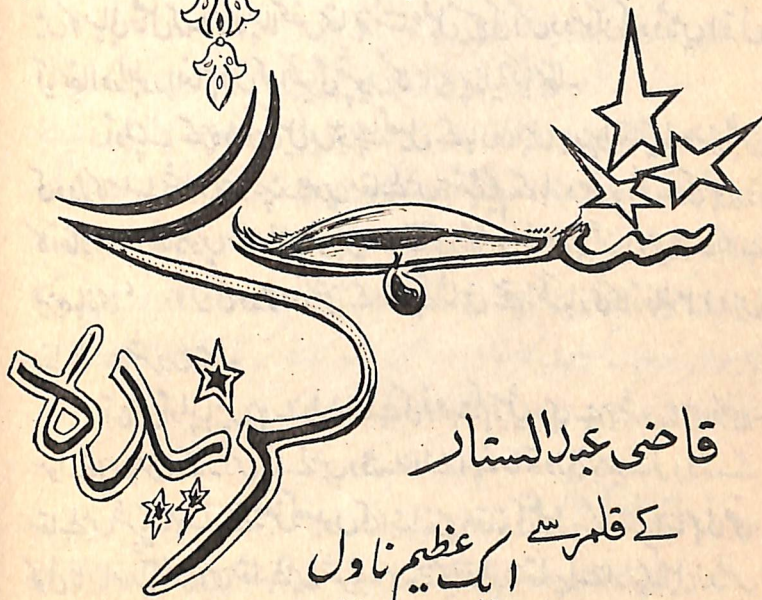 شب گزیدہ
قاضی عبدالستار
کے قلم سے
ایک عظیم ناول